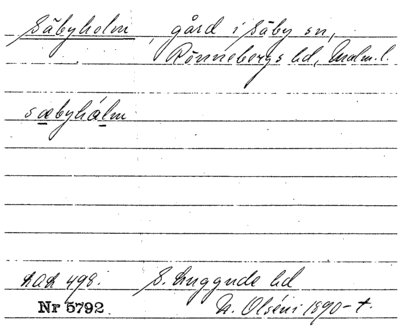 Säbyholm, gård i Säby sn,
Rönnebergs hd, Malm. l.
sæbyhålm
LAL 498. S. Luggude hd
Nr 5792 N. Olséni 1890-t.